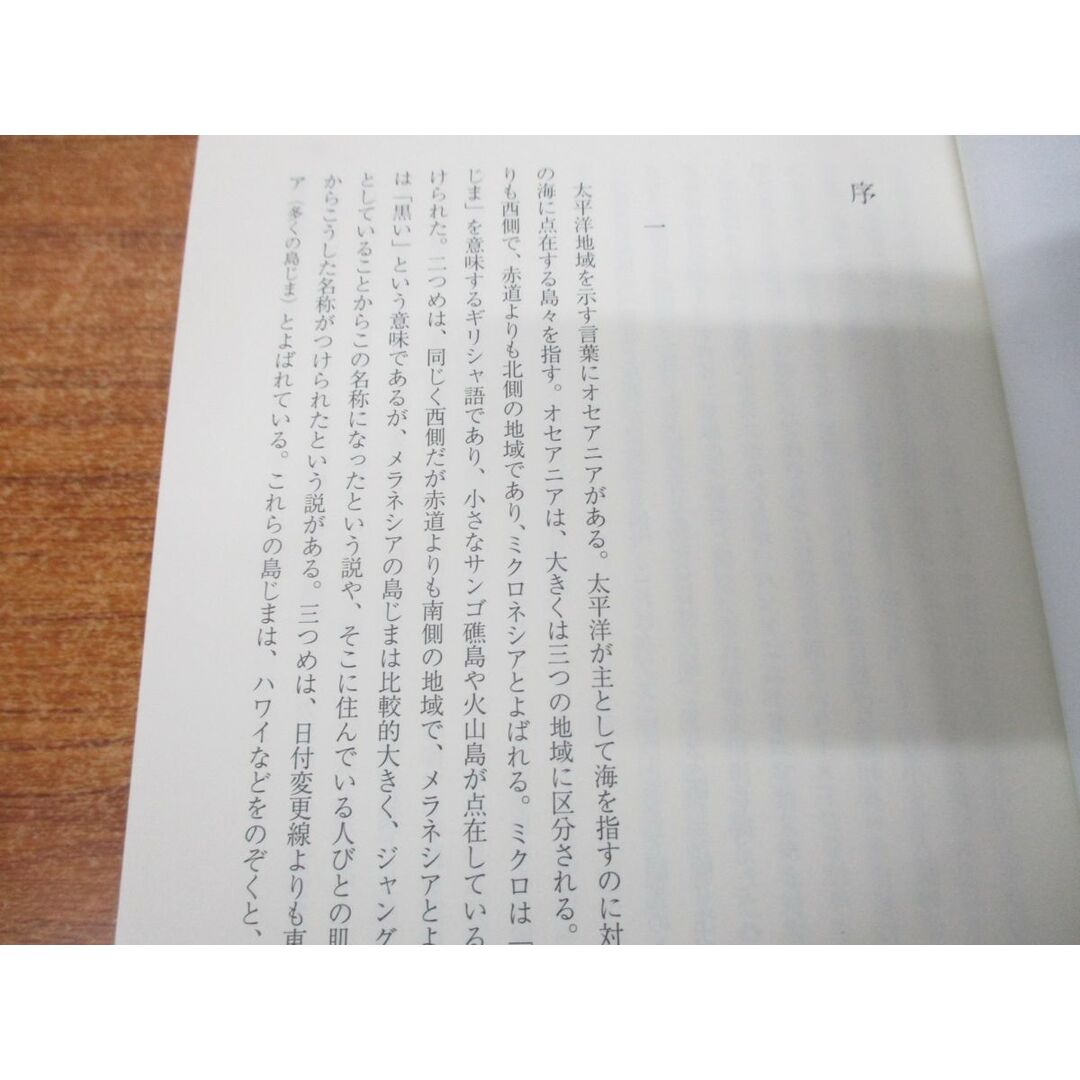 序
一
太平洋地域を示す言葉にオセアニアがある。太平洋が主として海を指すのに対
の海に点在する島々を指す。オセアニアは、大きくは三つの地域に区分される。
りも西側で、赤道よりも北側の地域であり、ミクロネシアとよばれる。ミクロは「
じま」を意味するギリシャ語であり、小さなサンゴ礁島や火山島が点在している
けられた。二つめは、同じく西側だが赤道よりも南側の地域で、メラネシアとよ
は「黒い」という意味であるが、メラネシアの島じまは比較的大きく、ジャング
としていることからこの名称になったという説や、そこに住んでいる人びとの肌
からこうした名称がつけられたという説がある。三つめは、日付変更線よりも東
ア（多くの島じま）とよばれている。これらの島じまは、ハワイなどをのぞくと、